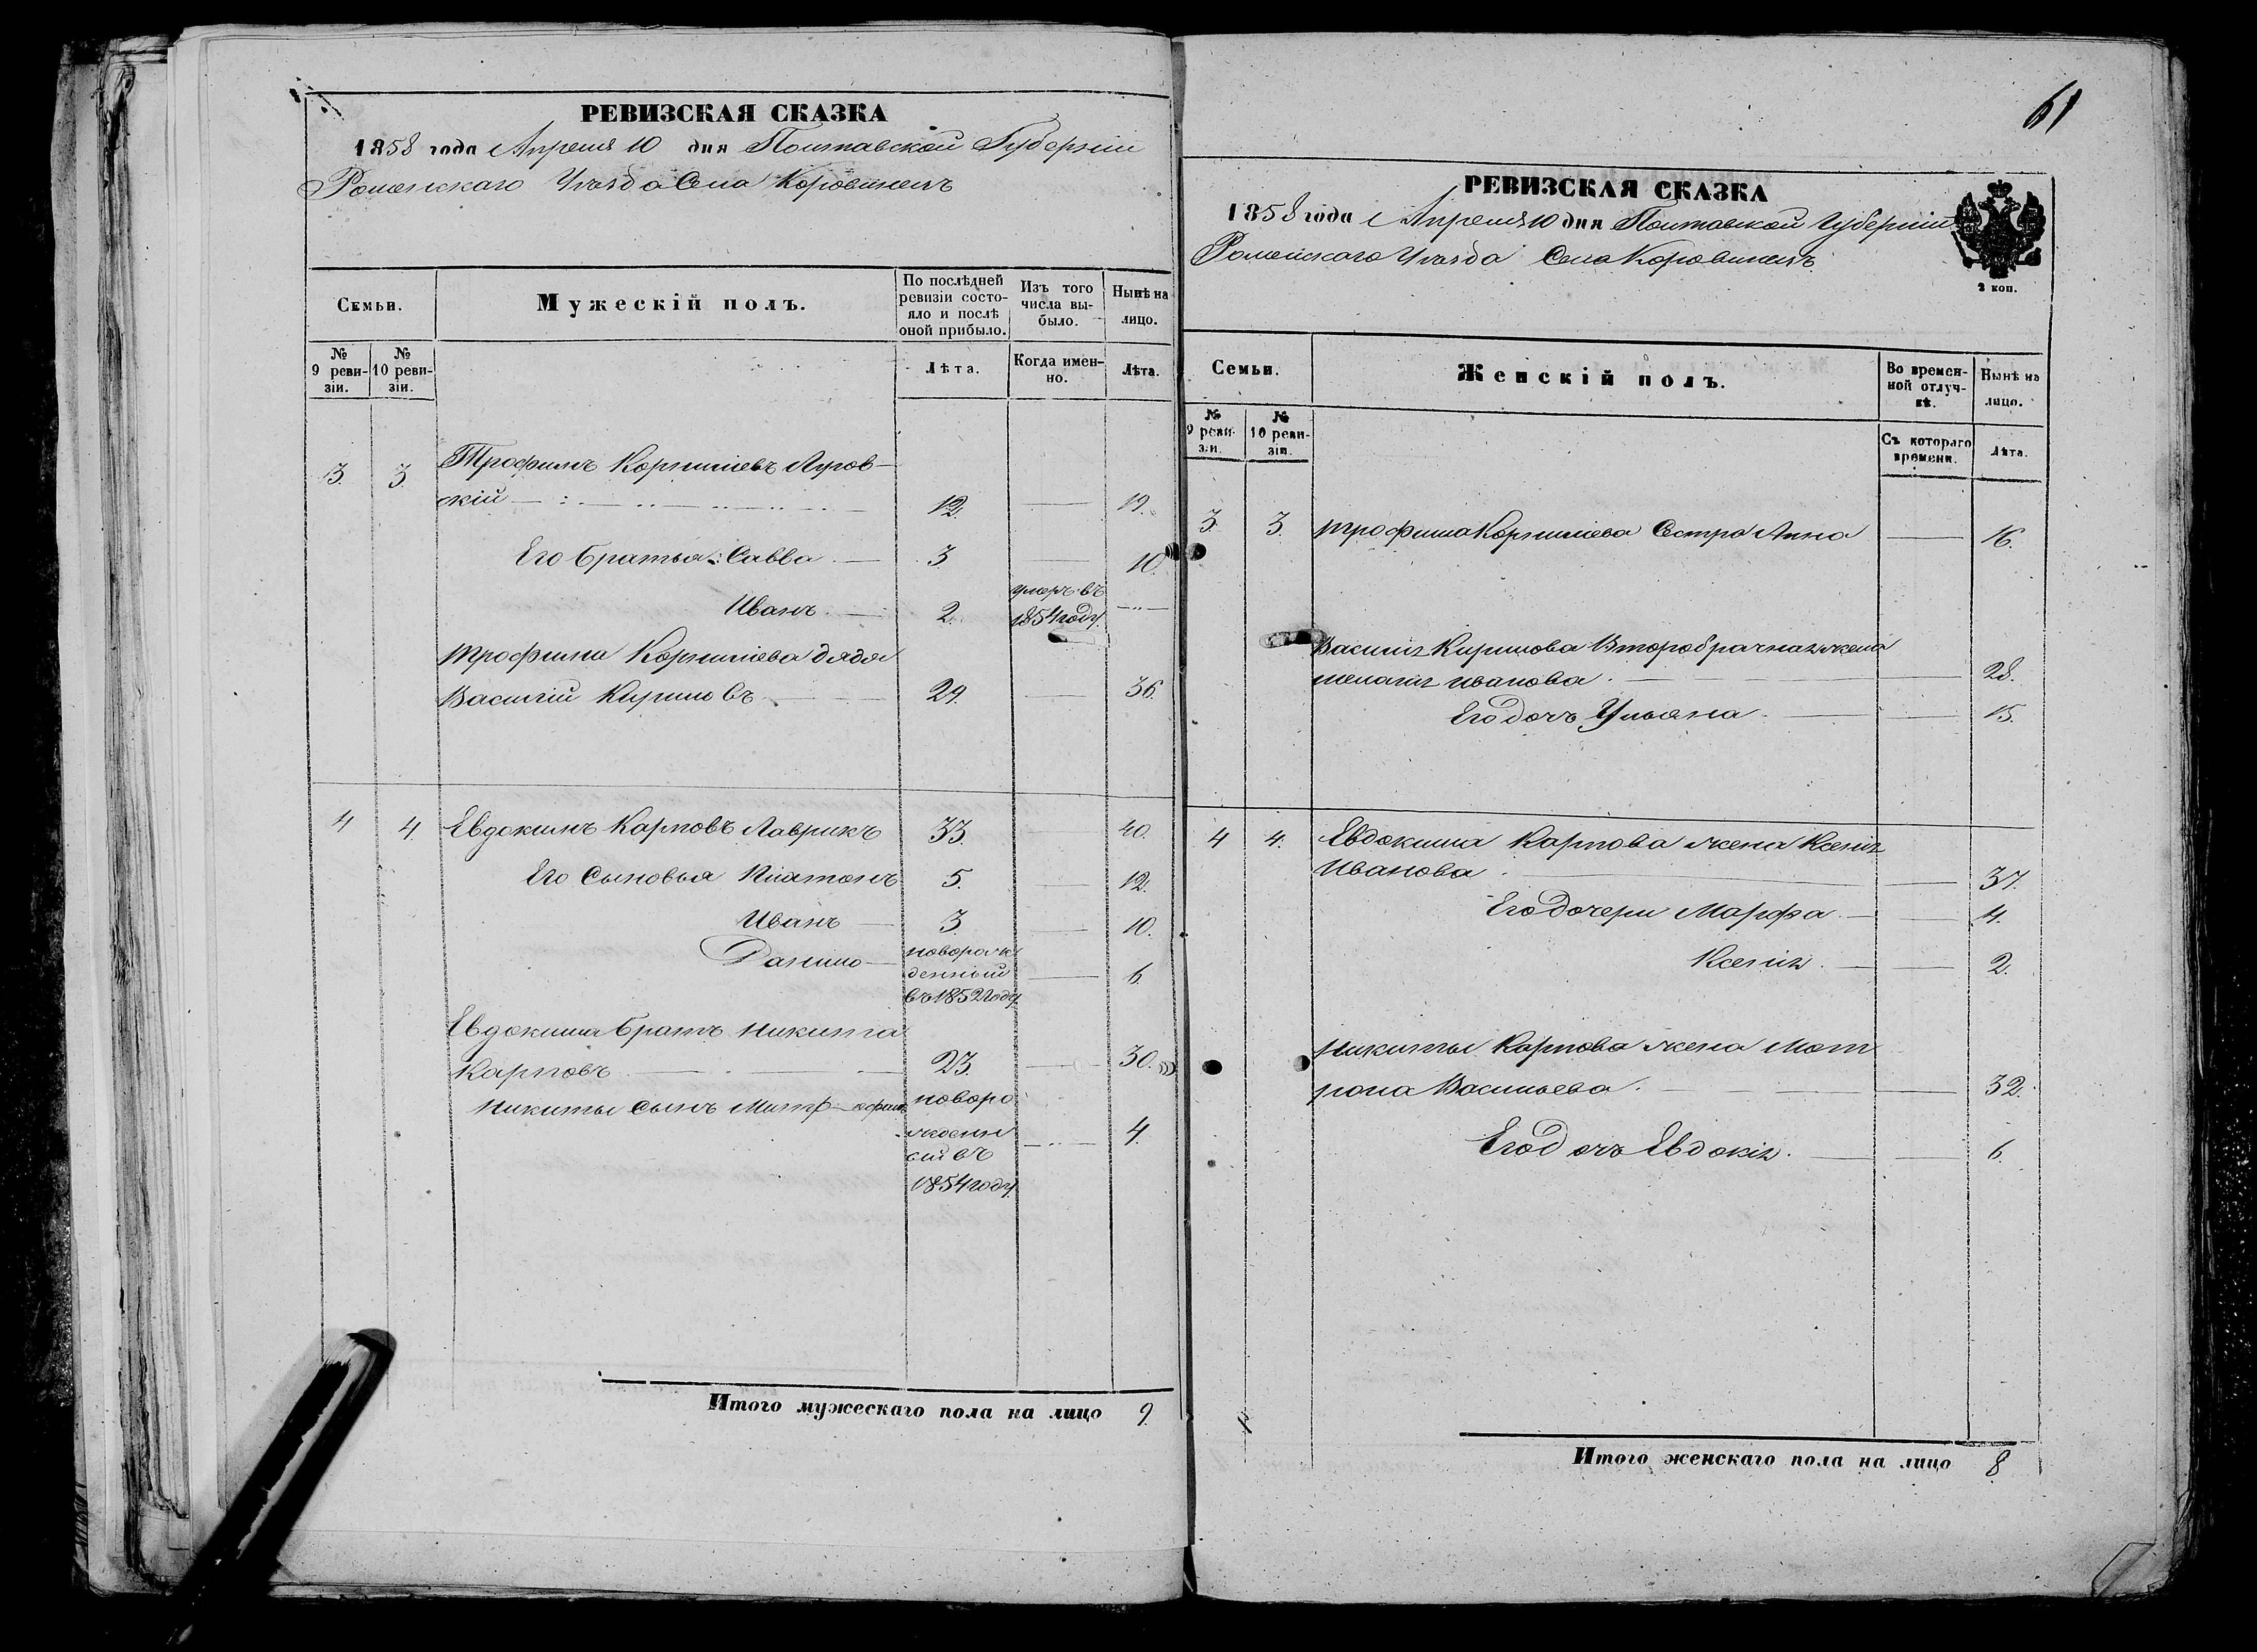 РЕВИЗСКАЯ СКАЗКА
1858 года Апреля 10 дня Полтавской Губерніи
Роменскаго Уезда Села Коровинецъ
Семьи.
Мужескій полъ.
По послѣдней ревизіи состояло и послѣ оной прибыло.
Изъ того числа выбыло.
Нынѣ на лицо.
№ 9 ревизіи.
№ 10 ревизіи.
Лѣта.
Когда именно.
Лѣта.
3. 3. Трофимъ Корнилiевъ Лугов-
скій 12. 19.
Его братья: Савва 3. 10.
Иванъ 2. умеръ въ
1854 году.
Трофима Корнилiева дядя
Василій Кириловъ 29. 36.
4 4. Евдокимъ Карповъ Лаврикъ 33. 40.
Его Сыновья Платонъ 5. 12.
Иванъ 3. 10.
Данило новорож
денный 6.
въ 1852 году.
Евдокима братъ Никита
Карповъ 23. 30.
Никиты сынъ Митрофанъ новоро
жденн 4.
ый въ
1854 году.
Итого мужескаго пола на лицо 9.
61
РЕВИЗСКАЯ СКАЗКА
1858 года Апреля 10 дня Полтавской Губерніи
Роменскаго Уезда Села Коровинецъ
2 коп.
Семьи.
Женскій полъ.
Во временной отлучкѣ.
Нынѣ на лицо.
№ 9 ревизіи.
№ 10 ревизіи.
Съ котораго времени.
Лѣта.
3. 3. Трофима Корнилiева Сестра Анна 16.
Василія Кирилова Второбрачная жена
Пелагія Иванова. 28.
Его дочь Ульяна. 15.
4 4. Евдокима Карпова жена Ксенія
Иванова. 37.
Его дочери Марфа. 4.
Ксенія. 2.
Никиты Карпова жена Мот
рона Васильева. 32.
Его дочь Евдокія. 6.
Итого женскаго пола на лицо 8.